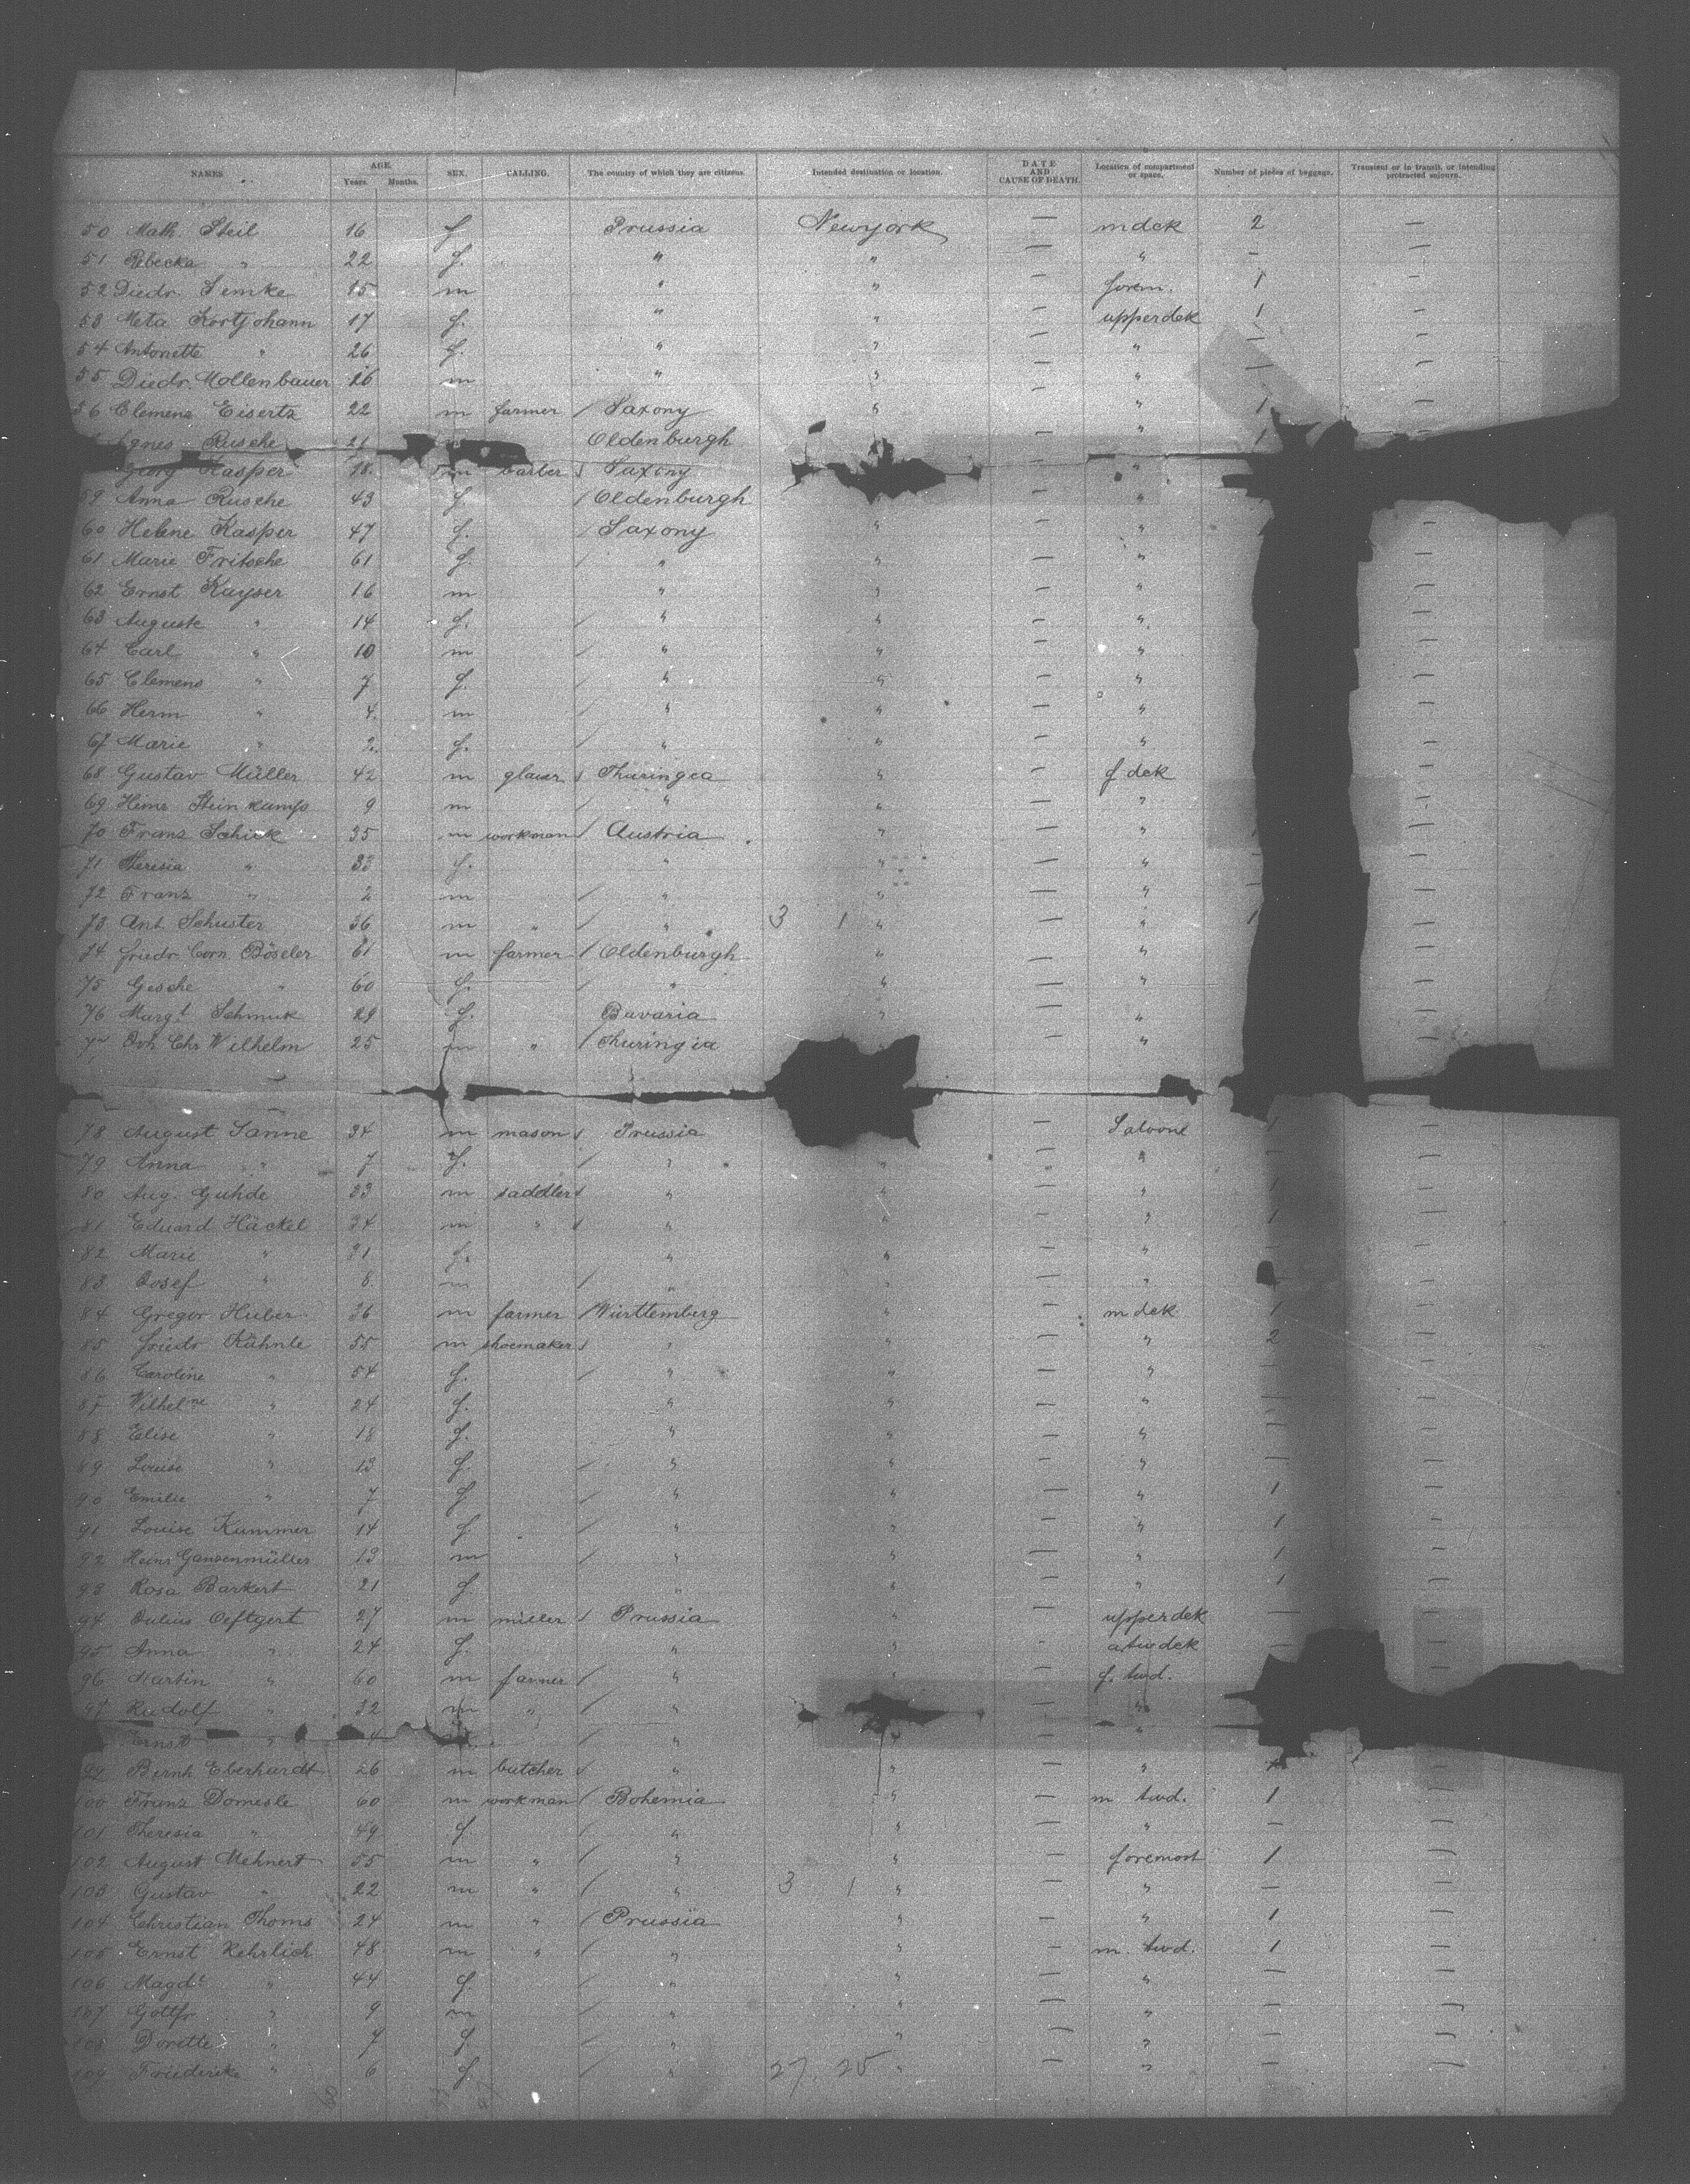 NAMES. AGE. Years. Months. SEX. CALLING. The country of which they are citizens. Intended destination or location. DATE AND CAUSE OF DEATH. Location of compartment or space. Number of pieces of baggage. Transient or in transit, or intending protracted sojourn.
50 Math. Steil 16 f Prussia Newyork — mdek 2 —
51 Rebecka " 22 f. " " — " — —
52 Diedr. Lemke 15 m " " — forem. 1 —
53 Meta Kortjohann 17 f. " " — upperdek 1 —
54 Antonette " 26 f. " " — " — —
55 Diedr. Mollenbauer 26 m " " — " — —
56 Clemens Eisertz 22 m farmer / Saxony " — " 1
Agnes Rusche 21 Oldenburgh — " 1
Georg Kasper 18 m barber Saxony — "
59 Anna Rusche 43 f. / Oldenburgh — " —
60 Helene Kasper 47 f. / Saxony " — " —
61 Marie Fritsche 61 f. / " " — " —
62 Ernst Kayser 16 m " " — " —
63 Auguste " 14 f. / " " — " —
64 Carl " 10 m / " " — " —
65 Clemens " 7 f. / " " — " —
66 Herm " 4 m / " " — " —
67 Marie " 2 f. / " " — " —
68 Gustav Müller 42 m glaser Thuringea " — f dek —
69 Heinr Steinkamp 9 m / " " — " —
70 Franz Schick 35 m workman / Austria " — " —
71 Theresia " 33 f. " " — " —
72 Franz " 2 m / " " — " —
73 Ant Schuster 36 m " / " 3 1 " — " 1 —
74 Friedr. Corn. Böseler 61 m farmer / Oldenburgh " — " —
75 Gesche " 60 f. / " " — " —
76 Margt Schmuk 29 f. Bavaria " — " —
77 Joh Chr Wilhelm 25 m " / Thuringia — " —
78 August Sanne 34 m mason Prussia — Saloone 1 —
79 Anna " 7 f. / " " — " — —
80 Aug. Guhde 33 m saddler " " — " —
81 Eduard Häckel 34 m " " " — " 1 —
82 Marie " 31 f. " " — " —
83 Josef " 8 m / " " — " —
84 Gregor Huber 36 m farmer / Württemberg " — m dek 1 —
85 Friedr Kühnle 55 m shoemaker " " — " 2 —
86 Caroline " 54 f. / " " — " — —
87 Wilhelme " 24 f. " " — " — —
88 Elise " 18 f. " " — " — —
89 Louise " 13 f. / " " — " — —
90 Emilie " 7 f / " " — " 1 —
91 Louise Kummer 14 f / " " — " 1 —
92 Heinr Ganzenmüller 13 m / " " — " 1 —
93 Rosa Barkert 21 f. " " — " 1 —
94 Julius Oeftgert 27 m müller Prussia " — upperdek — —
95 Anna " 24 f. " " - atwdek — —
96 Martin " 60 m farmer / " " — f. twd.
97 Rudolf " 32 m " / " — "
Ernst " 4 / " " "
99 Bernh Eberhardt 26 m butcher " " — " 1 —
100 Franz Domesle 60 m workman / Bohemia " — m twd. 1 —
101 Theresia " 49 f / " " — " — —
102 August Mehnert 55 m " / " " — foremost 1 —
103 Gustav " 22 m " / " 3 1 " — " — —
104 Christian Thoms 24 m " / Prussia " — " 1 —
105 Ernst Kehrlich 48 m " / " " — m. twd. 1 —
106 Magdt " 44 f. / " " — " — —
107 Gottfr " 9 m / " " — " — —
108 Dorette " 7 f. / " " — " — —
109 Friederike " 6 f / " 27. 25 " — " — —